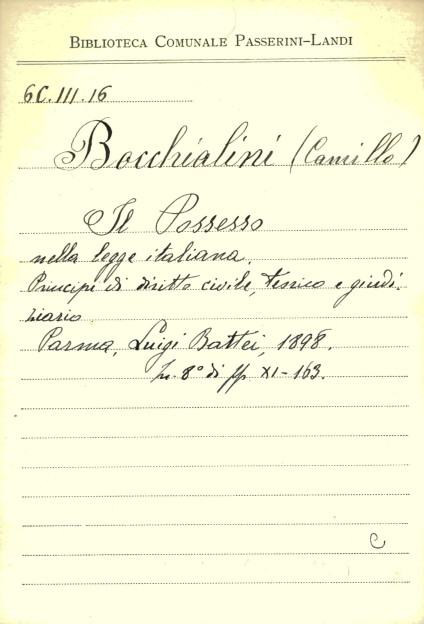 BIBLIOTECA COMUNALE PASSERINI-LANDI
6C.III.16
Bocchialini (Camillo)
Il Possesso
nella legge italiana.
Principi di diritto civile, teorico e giudi.
ziario
Parma, Luigi Battei, 1898.
In. 8° di pp XI-163.
C